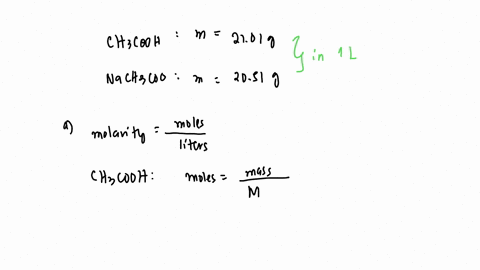 CH3COOH : m = 21.01 g } in 1 L
NaCH3COO : m = 20.51 g
a) molarity = moles / liters
CH3COOH: moles = mass / M